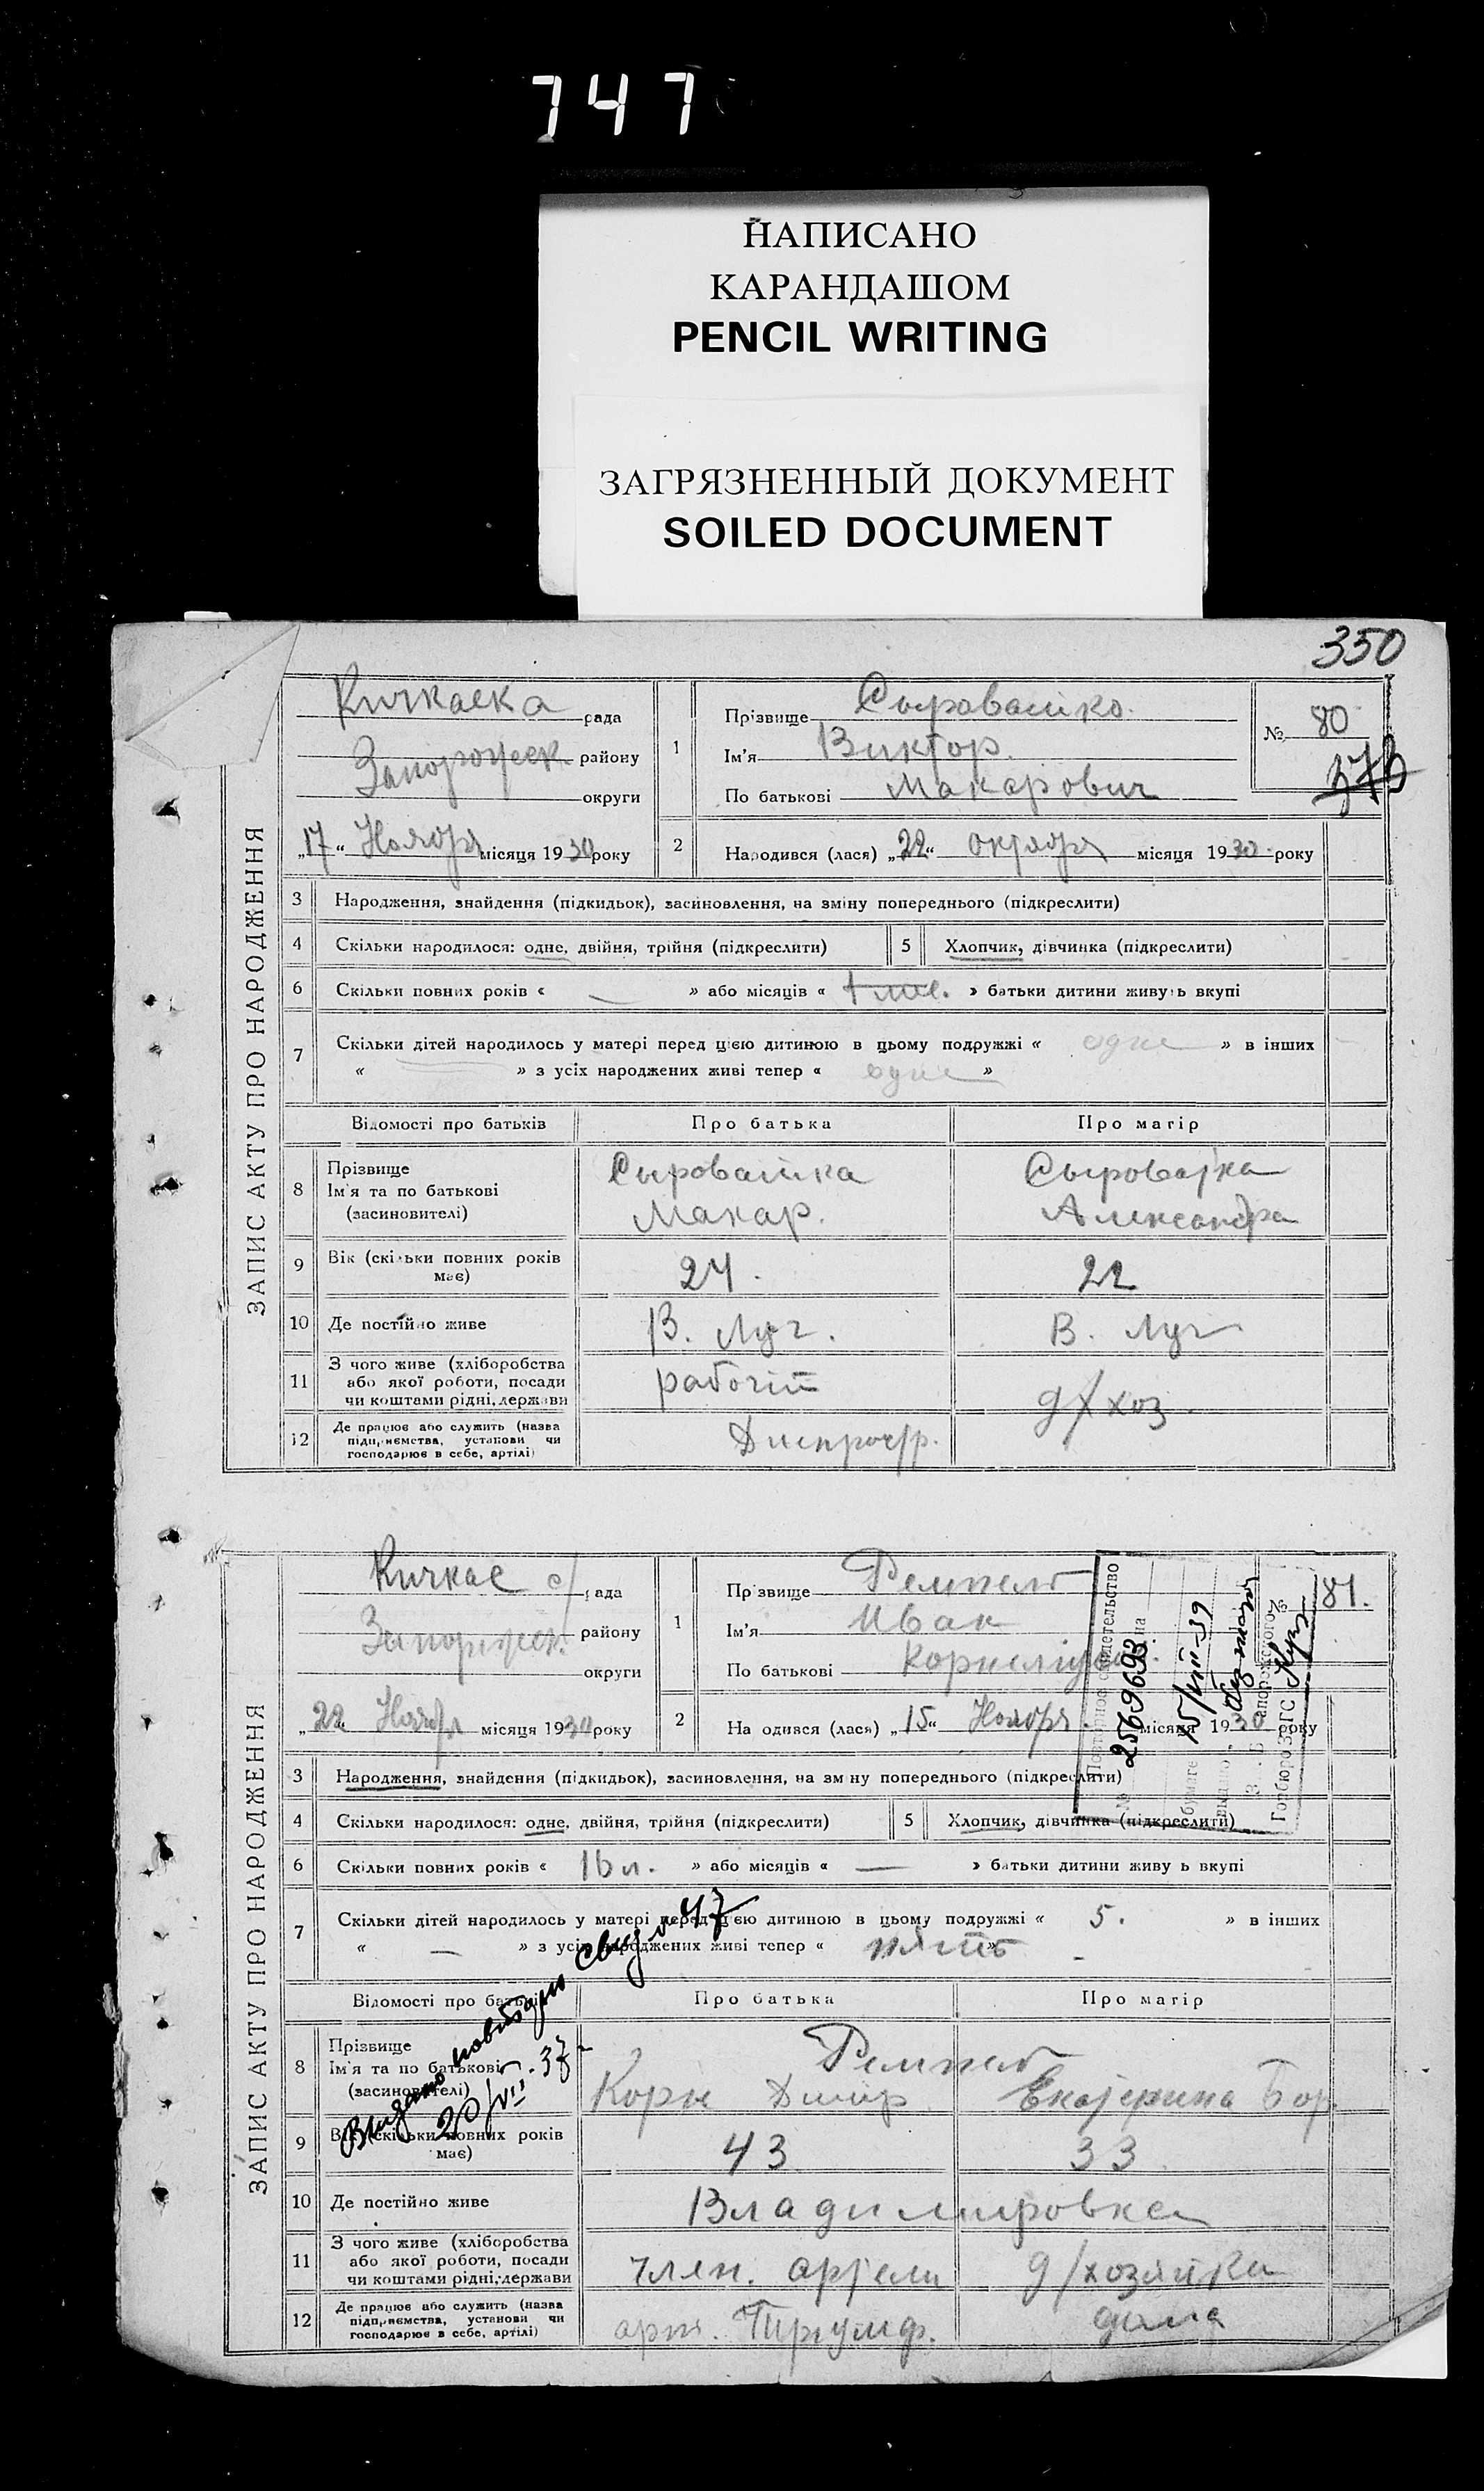 747
НАПИСАНО
КАРАНДАШОМ
PENCIL WRITING
ЗАГРЯЗНЕННЫЙ ДОКУМЕНТ
SOILED DOCUMENT
350
ЗАПИС АКТУ ПРО НАРОДЖЕННЯ
Кичкаска рада
Запорожск. району
округи
„17“ Ноября місяця 1930 року
1 Прізвище Сыровашко
Ім'я Виктор.
По батькові Макарович
№ 80
373
2 Народився (лася) „22“ октября місяця 1930 року
3 Народження, знайдення (підкидьок), засиновлення, на зміну попереднього (підкреслити)
4 Скільки народилося: одне, двійня, трійня (підкреслити) 5 Хлопчик, дівчинка (підкреслити)
6 Скільки повних років « — » або місяців « » батьки дитини живуть вкупі
7 Скільки дітей народилось у матері перед цією дитиною в цьому подружжі « одне » в інших
« — » з усіх народжених живі тепер « одне »
Відомості про батьків Про батька Про матір
8 Прізвище
Ім'я та по батькові
(засиновителі)
Сыровашка
Макар.
Сыроватка
Александра
9 Вік (скільки повних років
має)
24. 22
10 Де постійно живе В. Луг. В. Луг
11 З чого живе (хліборобства
або якої роботи, посади
чи коштами рідні, держави
рабочій
д/хоз.
12 Де працює або служить (назва
підприємства, установи чи
господарює в себе, артілі)
Днепростр.
ЗАПИС АКТУ ПРО НАРОДЖЕННЯ
Кичкас с/рада
Запорожск. району
округи
„22“ Ноября місяця 1930 року
1 Прізвище Ремпель
Ім'я Иван
По батькові
№ 81.
2 Народився (лася) „15“ Ноября. місяця 1930 року
Повторное свидетельство
№ 2569693 на
бумаге 15/VII-39
выдано
Запорожского
Горбюро ЗАГС
3 Народження, знайдення (підкидьок), засиновлення, на зміну попереднього (підкреслити)
4 Скільки народилося: одне, двійня, трійня (підкреслити) 5 Хлопчик, дівчинка (підкреслити)
6 Скільки повних років « 16 л. » або місяців « — » батьки дитини живуть вкупі
7 Скільки дітей народилось у матері перед цією дитиною в цьому подружжі « 5. » в інших
« — » з усіх народжених живі тепер « пять »
Видано свид. № 47
20/VII-37
Відомості про батьків Про батька Про матір
8 Прізвище
Ім'я та по батькові
(засиновителі)
Ремпель
Корн Дмитр Екатерина Бор.
9 Вік (скільки повних років
має)
43 33
10 Де постійно живе Владимировка
11 З чого живе (хліборобства
або якої роботи, посади
чи коштами рідні, держави
член. артели д/хозяйка
12 Де працює або служить (назва
підприємства, установи чи
господарює в себе, артілі)
арт. Триумф. дома